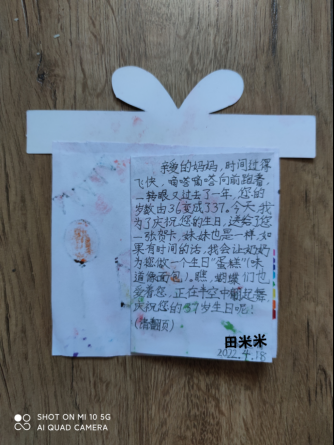 亲爱的妈妈，时间过得
飞快，嘀嗒嘀嗒向前跑着，
一转眼又过去了一年，您的
岁数由36变成了37。今天我
为了庆祝您的生日，送给了您
一张贺卡，妹妹也是一样，如
果有时间的话，我会让奶奶
为您做一个生日“蛋糕”（味
道像面包）。瞧，蝴蝶们也
爱着您，正在半空中翩起舞
庆祝您的37岁生日呢！
（请翻页）
田米米
2022.4.18
SHOT ON MI 10 5G
AI QUAD CAMERA